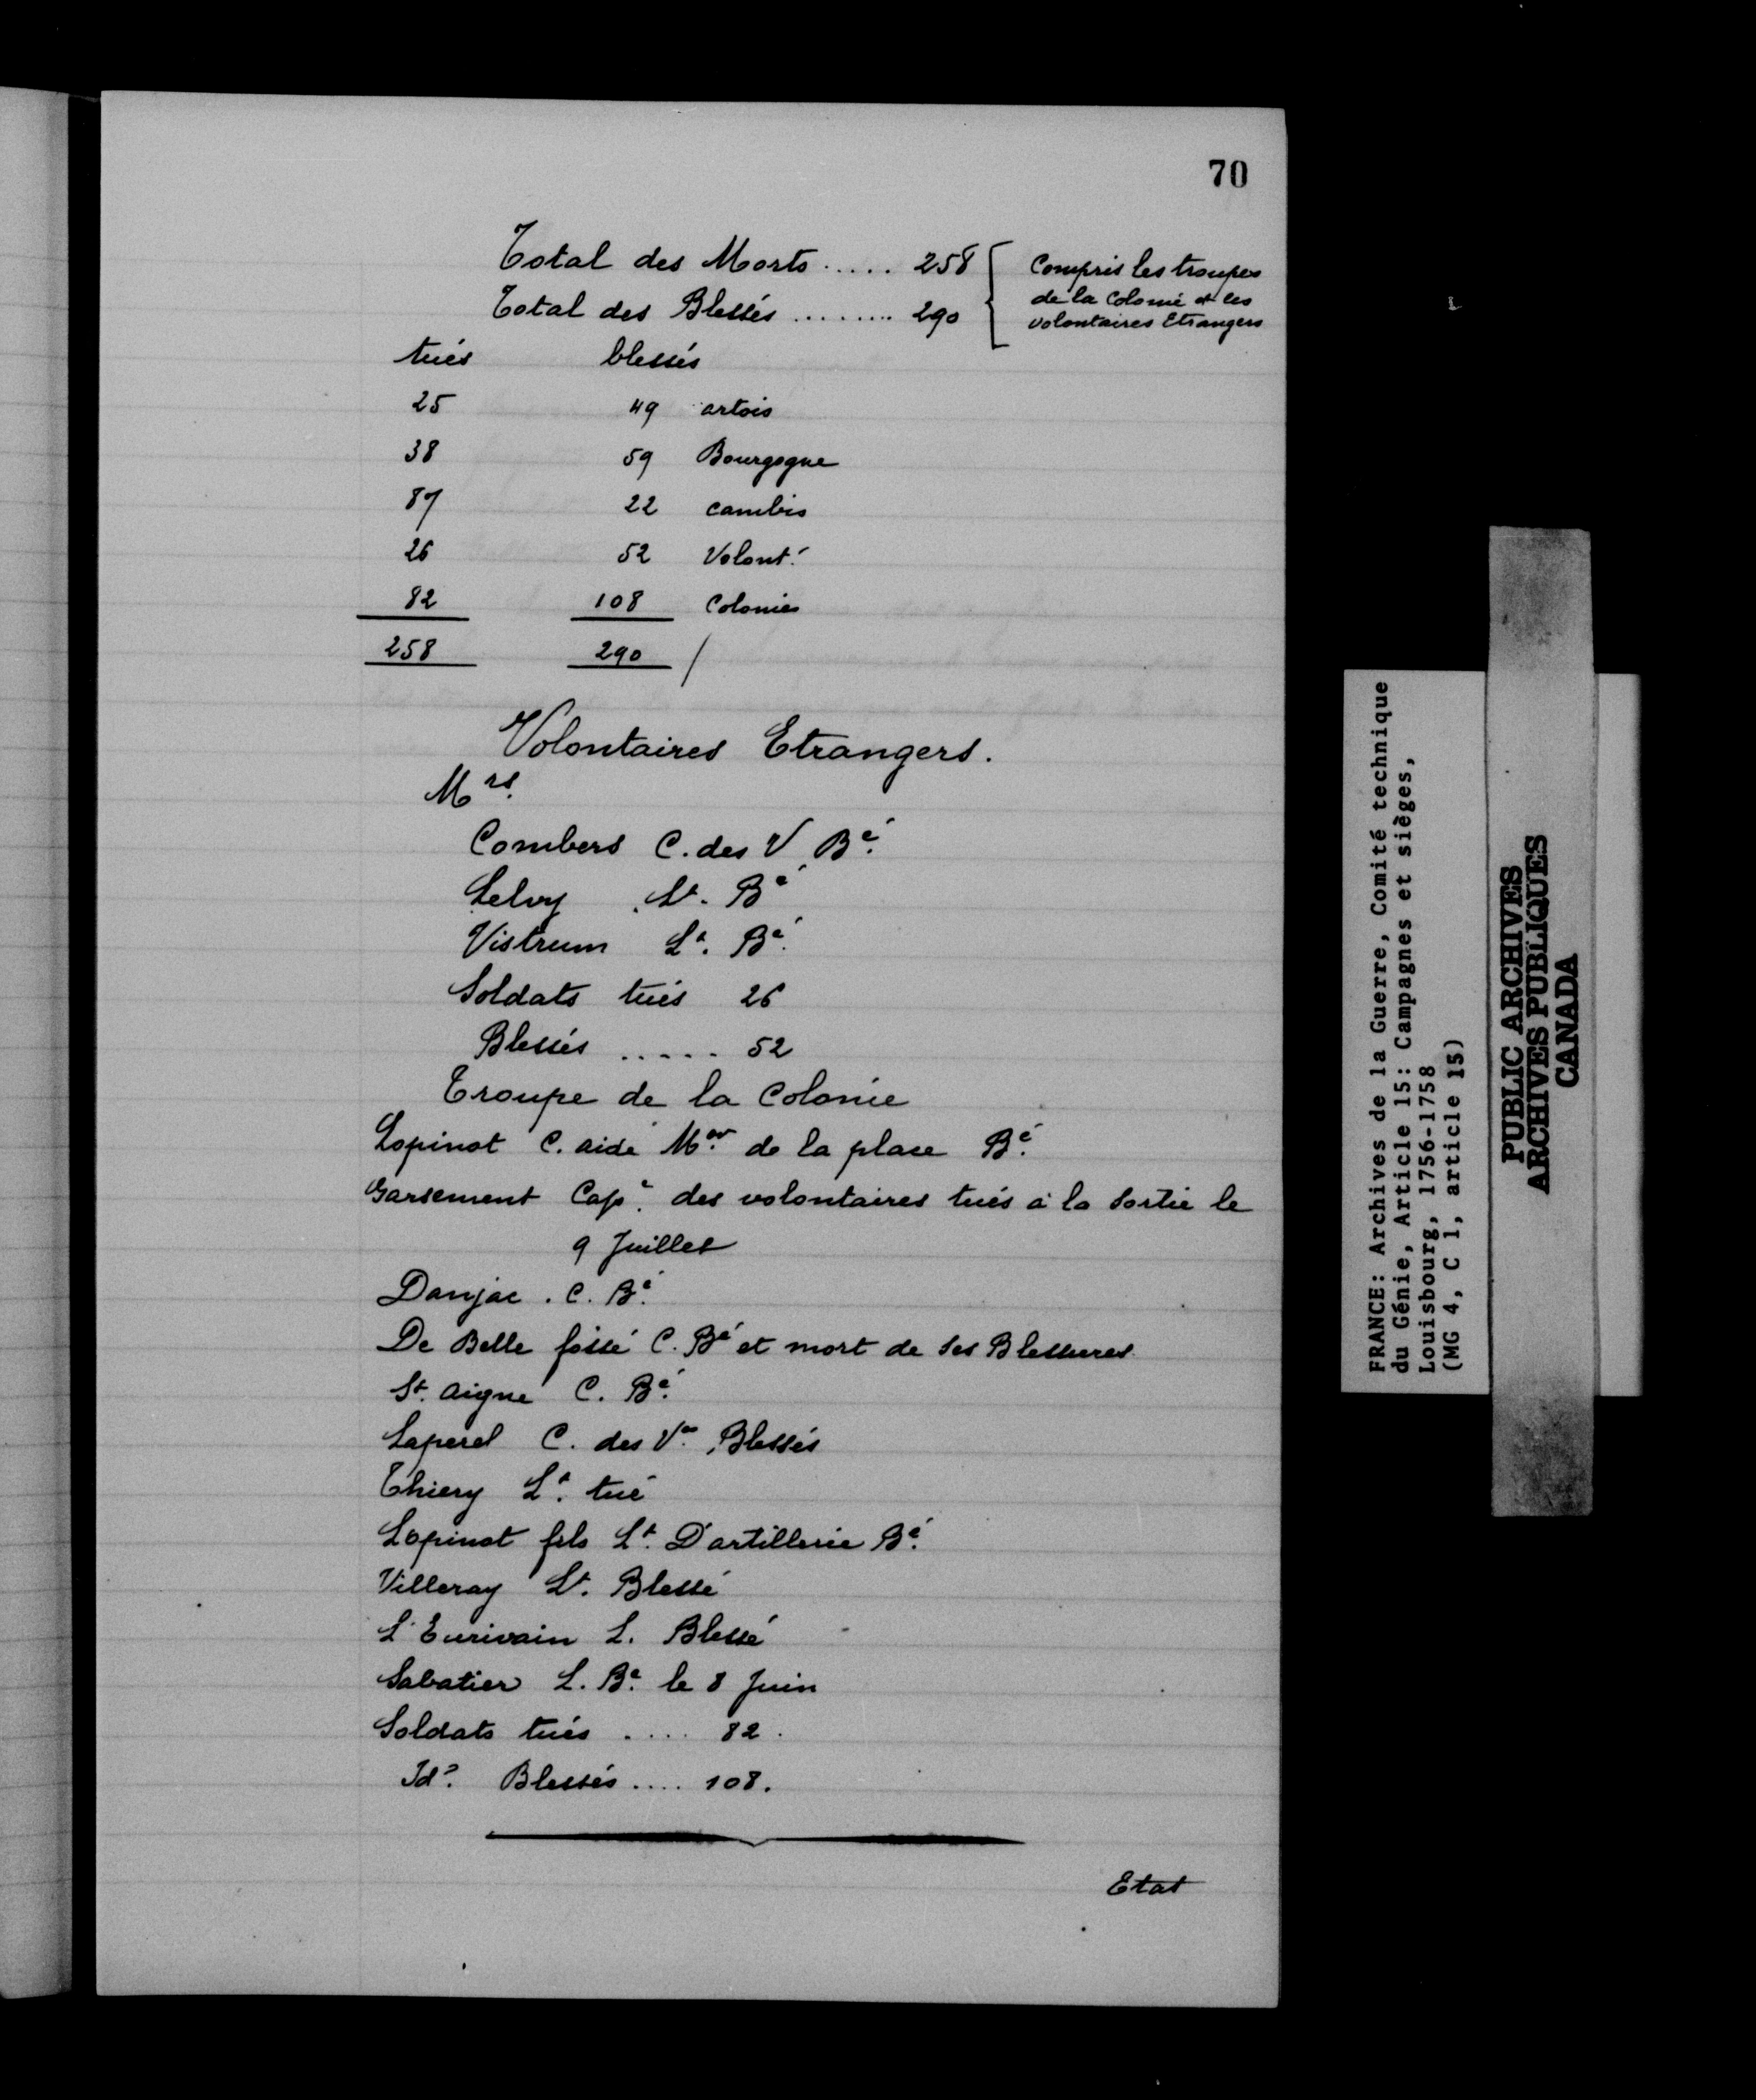 70
Total des Morts ..... 258 { Compris les troupes
de la Colonie et les
Total des Blessés ........ 290 volontaires Etrangers
tués blessés
25 49 artois
38 59 Bourgogne
87 22 cambis
26 52 Volont.
82 108 Colonies
258 290 /
Volontaires Etrangers.
Mrs.
Combers C. des V Bé.
Lelvy Lt. Bé
Vistrum Lt. Bé.
Soldats tués 26
Blessés ..... 52
Troupe de la Colonie
Lopinot C. aide Mor. de la place Bé.
Garsement Cape. des volontaires tués à la sortie le
9 Juillet
Danjac . C. Bé.
De Belle fossé C. Bé et mort de ses Blessures
St. Aigne C. Bé.
Laperel C. des Ves. Blessés
Thiery Lt. tué
Lopinot fils Lt. D'artillerie Bé.
Villeray Lt. Blessé
L'Eurivain L. Blessé
Sabatier L. Bé. le 8 Juin
Soldats tués .... 82.
Ido. Blessés .... 108.
Etat
FRANCE: Archives de la Guerre, Comité technique
du Génie, Article 15: Campagnes et sièges,
Louisbourg, 1756-1758
(MG 4, C 1, article 15)
PUBLIC ARCHIVES
ARCHIVES PUBLIQUES
CANADA